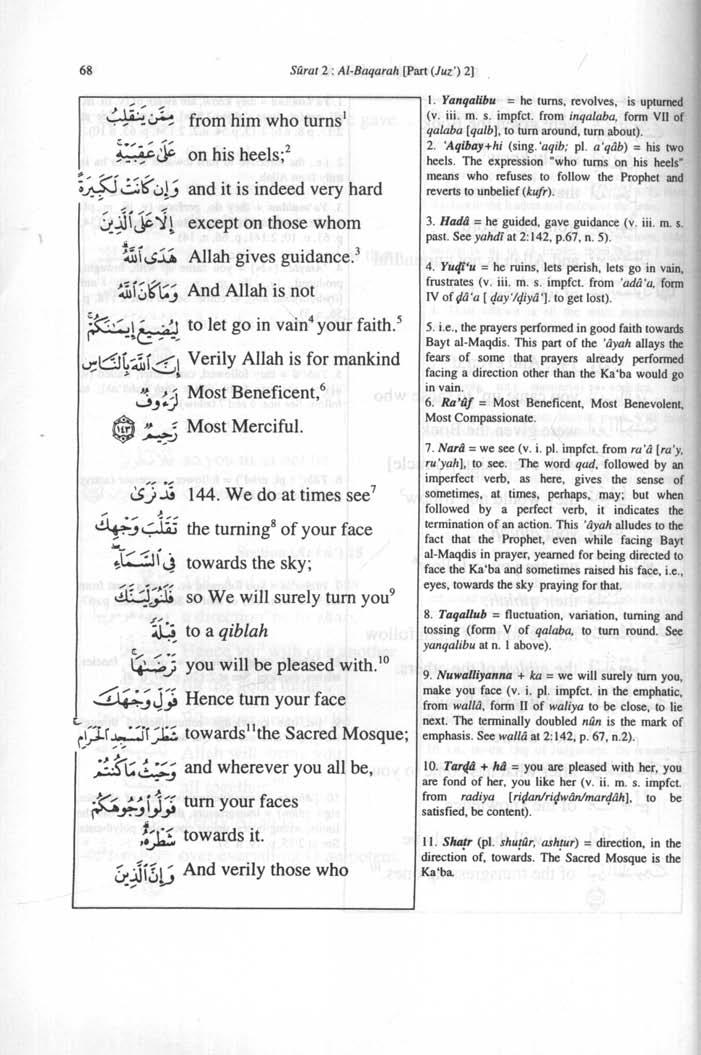 68
Sûrat 2 : Al-Baqarah [Part (Juz') 2]
مِمَّن يَنقَلِبُ from him who turns¹
عَلَىٰ عَقِبَيْهِ on his heels;²
وَإِن كَانَتْ لَكَبِيرَةً and it is indeed very hard
إِلَّا عَلَى الَّذِينَ except on those whom
هَدَى اللَّهُ Allah gives guidance.³
وَمَا كَانَ اللَّهُ And Allah is not
لِيُضِيعَ إِيمَانَكُمْ to let go in vain⁴ your faith.⁵
إِنَّ اللَّهَ بِالنَّاسِ Verily Allah is for mankind
لَرَءُوفٌ Most Beneficent,⁶
رَّحِيمٌ ١٤٣ Most Merciful.
قَدْ نَرَىٰ 144. We do at times see⁷
تَقَلُّبَ وَجْهِكَ the turning⁸ of your face
فِي السَّمَاءِ towards the sky;
فَلَنُوَلِّيَنَّكَ so We will surely turn you⁹
قِبْلَةً to a qiblah
تَرْضَاهَا you will be pleased with.¹⁰
فَوَلِّ وَجْهَكَ Hence turn your face
شَطْرَ الْمَسْجِدِ الْحَرَامِ towards¹¹the Sacred Mosque;
وَحَيْثُ مَا كُنتُمْ and wherever you all be,
فَوَلُّوا وُجُوهَكُمْ turn your faces
شَطْرَهُ towards it.
وَإِنَّ الَّذِينَ And verily those who
1. Yanqalibu = he turns, revolves, is upturned
(v. iii. m. s. impfct. from inqalaba, form VII of
qalaba [qalb], to turn around, turn about).
2. 'Aqibay+hi (sing.'aqib; pl. a'qâb) = his two
heels. The expression "who turns on his heels"
means who refuses to follow the Prophet and
reverts to unbelief (kufr).
3. Hadâ = he guided, gave guidance (v. iii. m. s.
past. See yahdî at 2:142, p.67, n. 5).
4. Yuḍî'u = he ruins, lets perish, lets go in vain,
frustrates (v. iii. m. s. impfct. from 'adâ'a, form
IV of ḍâ'a [ ḍay'/ḍiyâ']. to get lost).
5. i.e., the prayers performed in good faith towards
Bayt al-Maqdis. This part of the 'âyah allays the
fears of some that prayers already performed
facing a direction other than the Ka'ba would go
in vain.
6. Ra'ûf = Most Beneficent, Most Benevolent,
Most Compassionate.
7. Narâ = we see (v. i. pl. impfct. from ra'â [ra'y,
ru'yah], to see. The word qad, followed by an
imperfect verb, as here, gives the sense of
sometimes, at times, perhaps, may; but when
followed by a perfect verb, it indicates the
termination of an action. This 'âyah alludes to the
fact that the Prophet, even while facing Bayt
al-Maqdis in prayer, yearned for being directed to
face the Ka'ba and sometimes raised his face, i.e.,
eyes, towards the sky praying for that.
8. Taqallub = fluctuation, variation, turning and
tossing (form V of qalaba, to turn round. See
yanqalibu at n. 1 above).
9. Nuwalliyanna + ka = we will surely turn you,
make you face (v. i. pl. impfct. in the emphatic,
from wallâ, form II of waliya to be close, to lie
next. The terminally doubled nûn is the mark of
emphasis. See wallâ at 2:142, p. 67, n.2).
10. Tarḍâ + hâ = you are pleased with her, you
are fond of her, you like her (v. ii. m. s. impfct.
from radiya [riḍan/riḍwân/marḍâh], to be
satisfied, be content).
11. Shaṭr (pl. shuṭûr, ashṭur) = direction, in the
direction of, towards. The Sacred Mosque is the
Ka'ba.